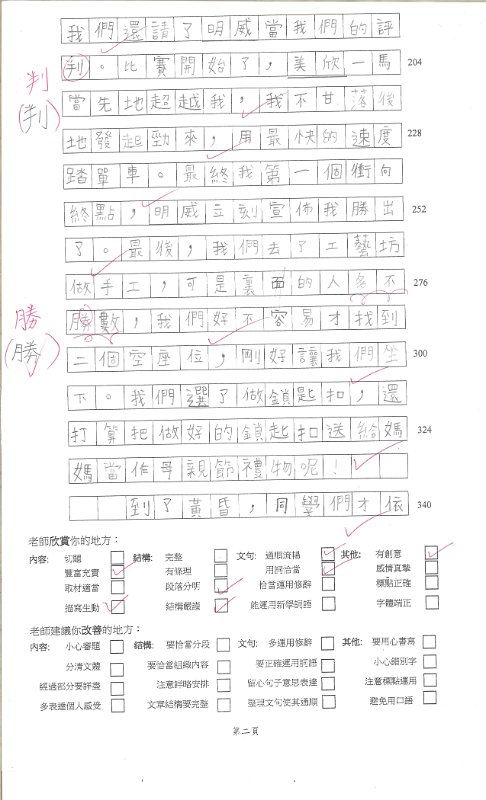 我們還請了明威當我們的評
判。比賽開始了，美欣一馬 204
當先地超越我，我不甘落後
地發起勁來，用最快的速度 228
踏單車。最終我第一個衝向
終點，明威立刻宣佈我勝出 252
了。最後，我們去了工藝坊
做手工，可是裏面的人多不 276
勝數，我們好不容易才找到
二個空座位，剛好讓我們坐 300
下。我們選了做鎖匙扣，還
打算把做好的鎖起扣送給媽 324
媽當作母親節禮物呢！
到了黃昏，同學們才依 340
判
(判)
勝
(勝)
老師欣賞你的地方：
內容: 切題 結構: 完整 文句: 通順流暢 其他: 有創意
豐富充實 有條理 用詞恰當 感情真摯
取材適當 段落分明 恰當運用修辭 標點正確
描寫生動 結構嚴謹 能運用新學詞語 字體端正
老師建議你改善的地方：
內容: 小心審題 結構: 要恰當分段 文句: 多運用修辭 其他: 要用心書寫
分清文體 要恰當組織內容 要正確運用詞語 小心錯別字
經過部分要詳盡 注意詳略安排 留心句子意思表達 注意標點運用
多表達個人感受 文章結構要完整 整理文句使其通順 避免用口語
第二頁